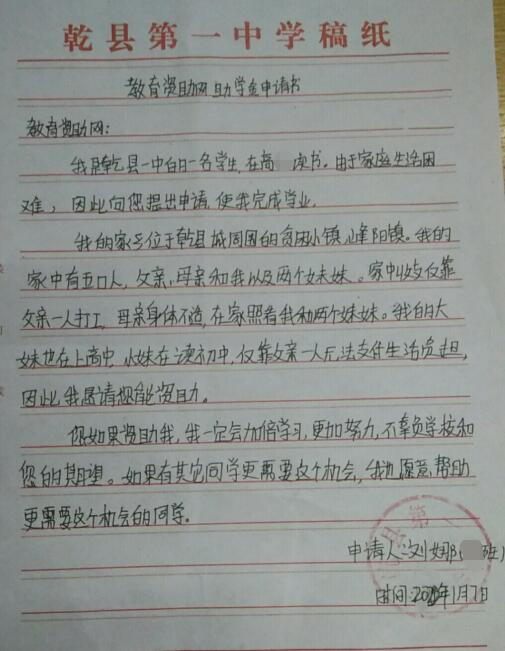 乾县第一中学稿纸
教育资助网助学金申请书
教育资助网:
我是乾县一中的一名学生,在高 读书。由于家庭生活困
难,因此向您提出申请,使我完成学业。
我的家乡位于乾县城周围的贫困小镇,峰阳镇。我的
家中有五口人,父亲,母亲和我以及两个妹妹。家中收入仅靠
父亲一人打工,母亲身体不适,在家照看我和两个妹妹。我的大
妹也在上高中,小妹在读初中,仅靠父亲一人无法支付生活费担,
因此,我恳请您能资助。
您如果资助我,我一定会加倍学习,更加努力,不辜负学校和
您的期望。如果有其它同学更需要这个机会,我也愿意帮助
更需要这个机会的同学。
申请人:刘娜( 班)
时间: 年1月7日
县第一